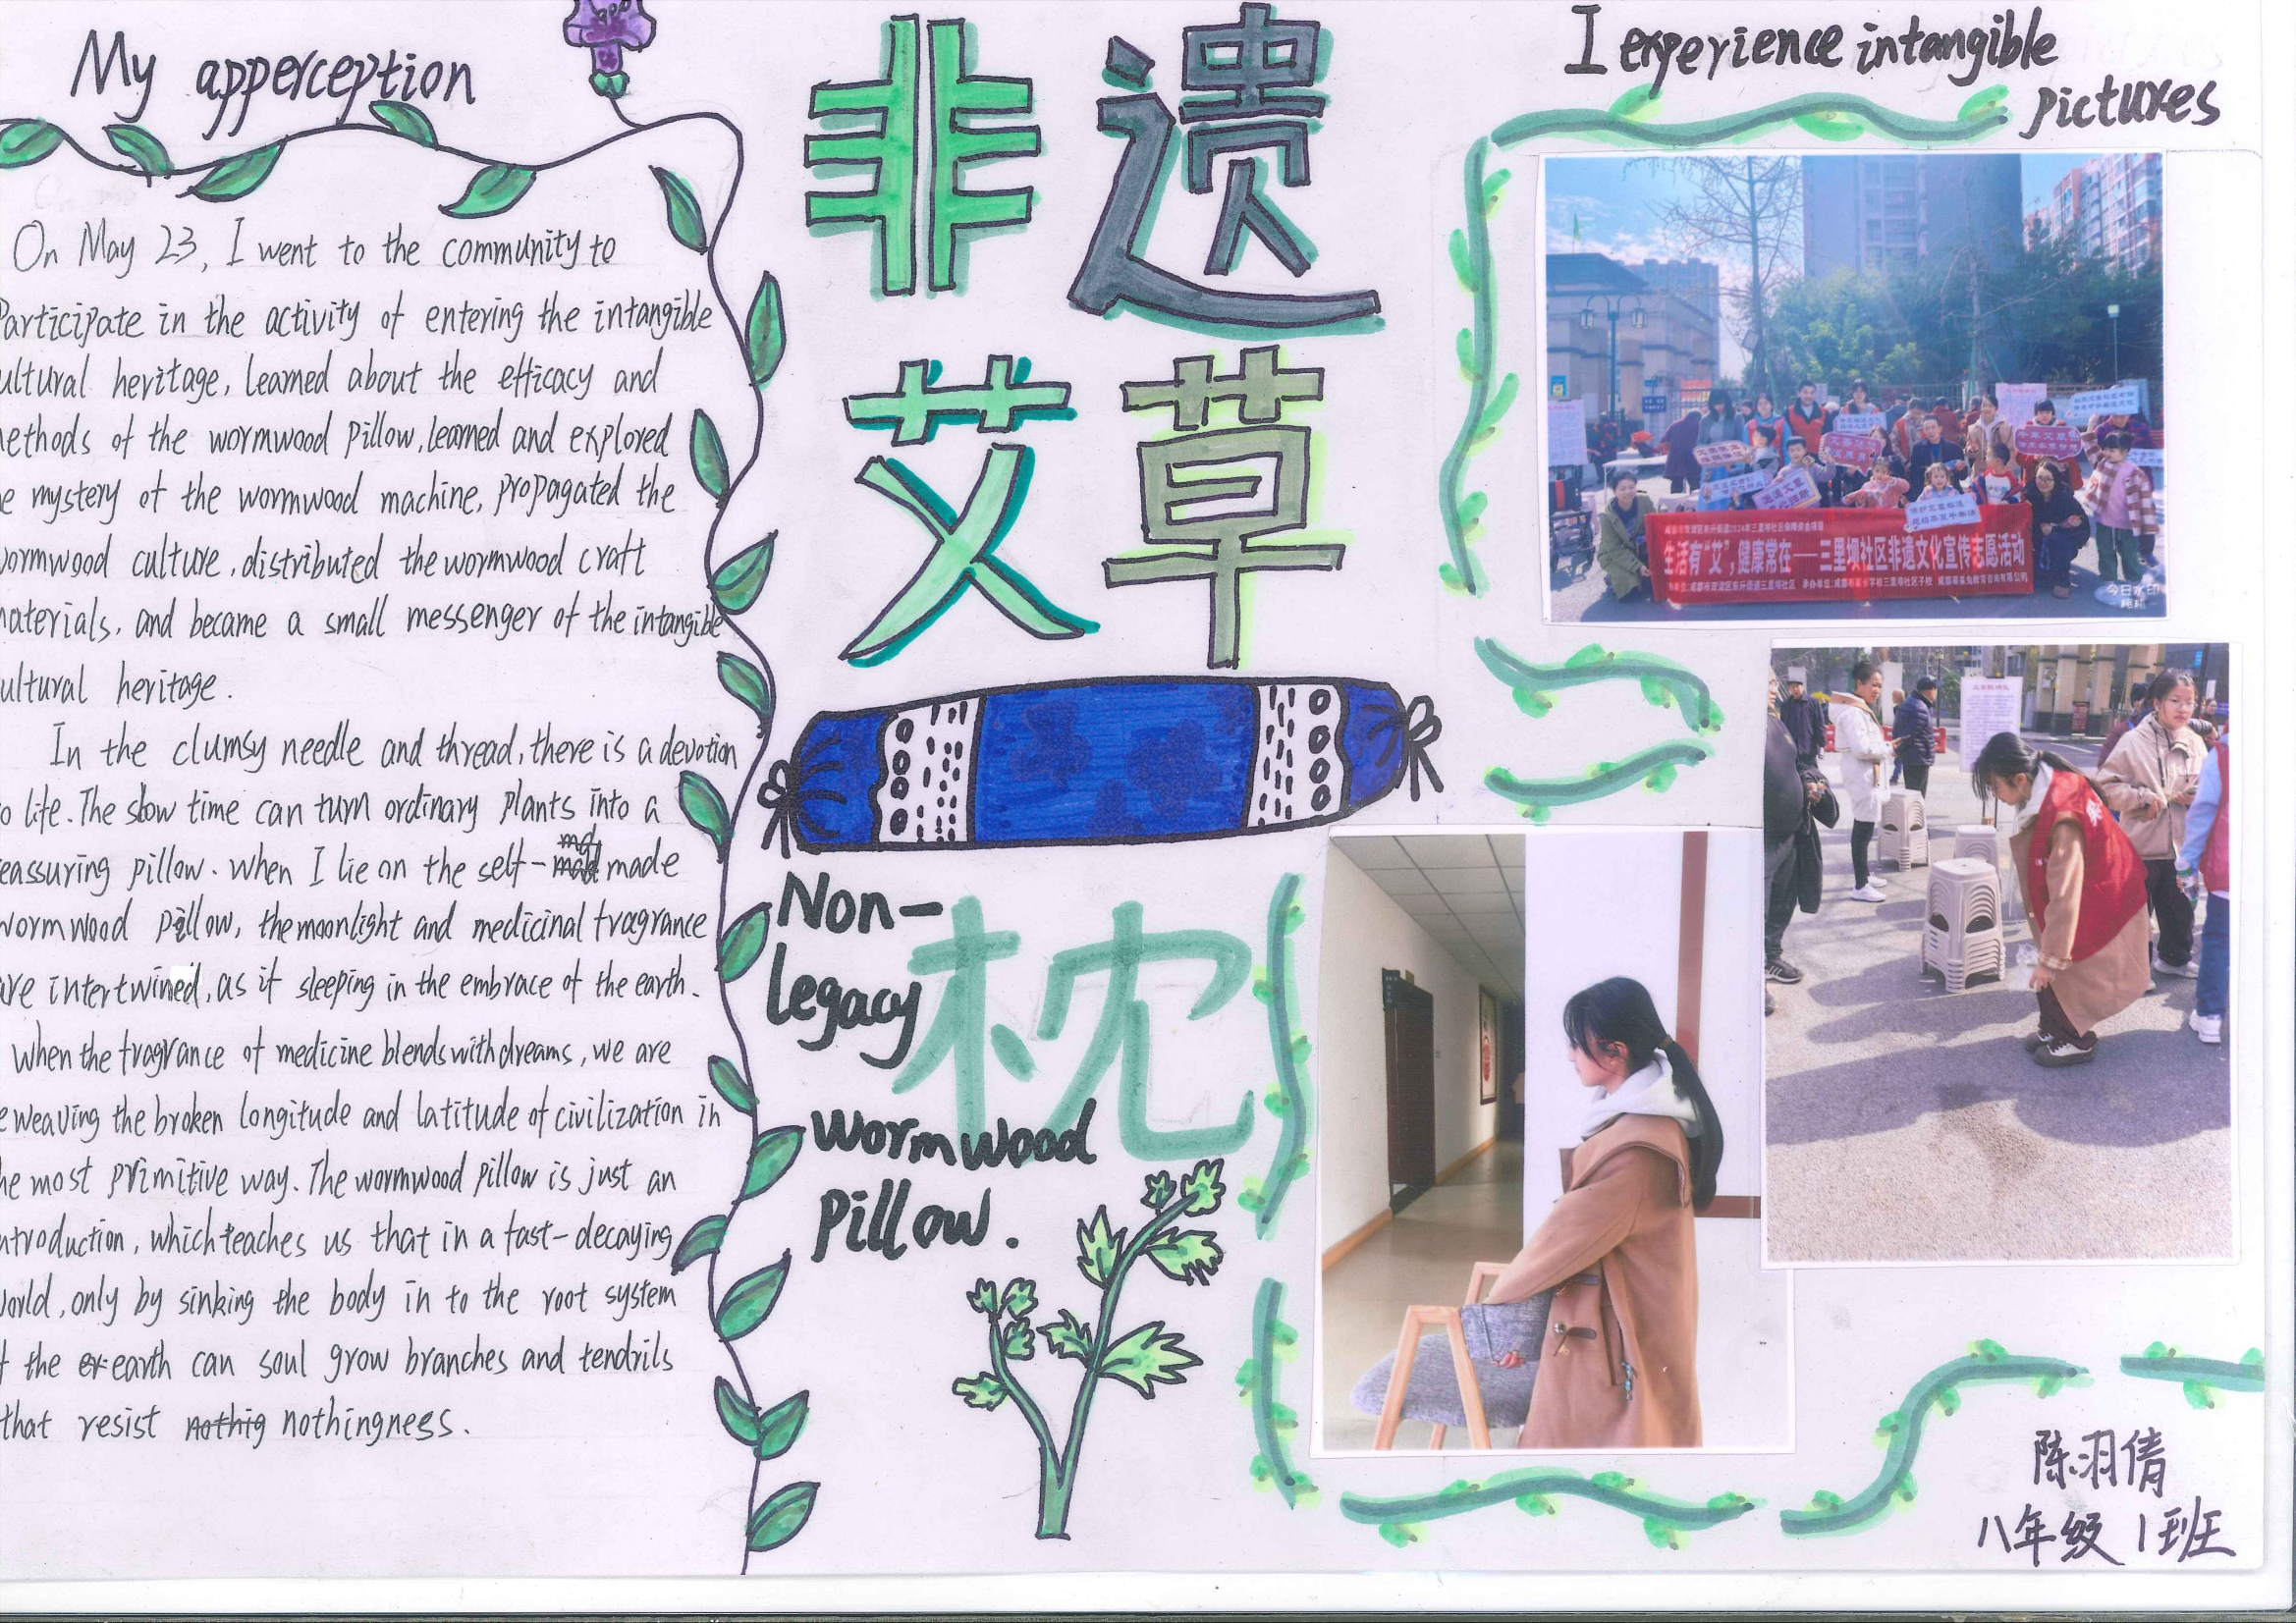 My apperception
On May 23, I went to the community to
Participate in the activity of entering the intangible
ultural heritage, learned about the efficacy and
ethods of the wormwood pillow, learned and explored
e mystery of the wormwood machine, propagated the
wormwood culture, distributed the wormwood craft
materials, and became a small messenger of the intangible
ultural heritage.
In the clumsy needle and thread, there is a devotion
o life. The slow time can turn ordinary plants into a
eassuring pillow. When I lie on the self-made
wormwood pillow, the moonlight and medicinal fragrance
are intertwined, as if sleeping in the embrace of the earth.
When the fragrance of medicine blends with dreams, we are
eweaving the broken longitude and latitude of civilization in
he most primitive way. The wormwood pillow is just an
ntroduction, which teaches us that in a fast-decaying
World, only by sinking the body in to the root system
f the earth can soul grow branches and tendrils
that resist nothingness.
非遗
艾草
枕
Non-
legacy
wormwood
pillow.
I experience intangible
pictures
成都市双流区东升街道2024年三里坝社区保障资金项目
生活有“艾”,健康常在——三里坝社区非遗文化宣传志愿活动
今日水印
相机
陈羽倩
八年级1班